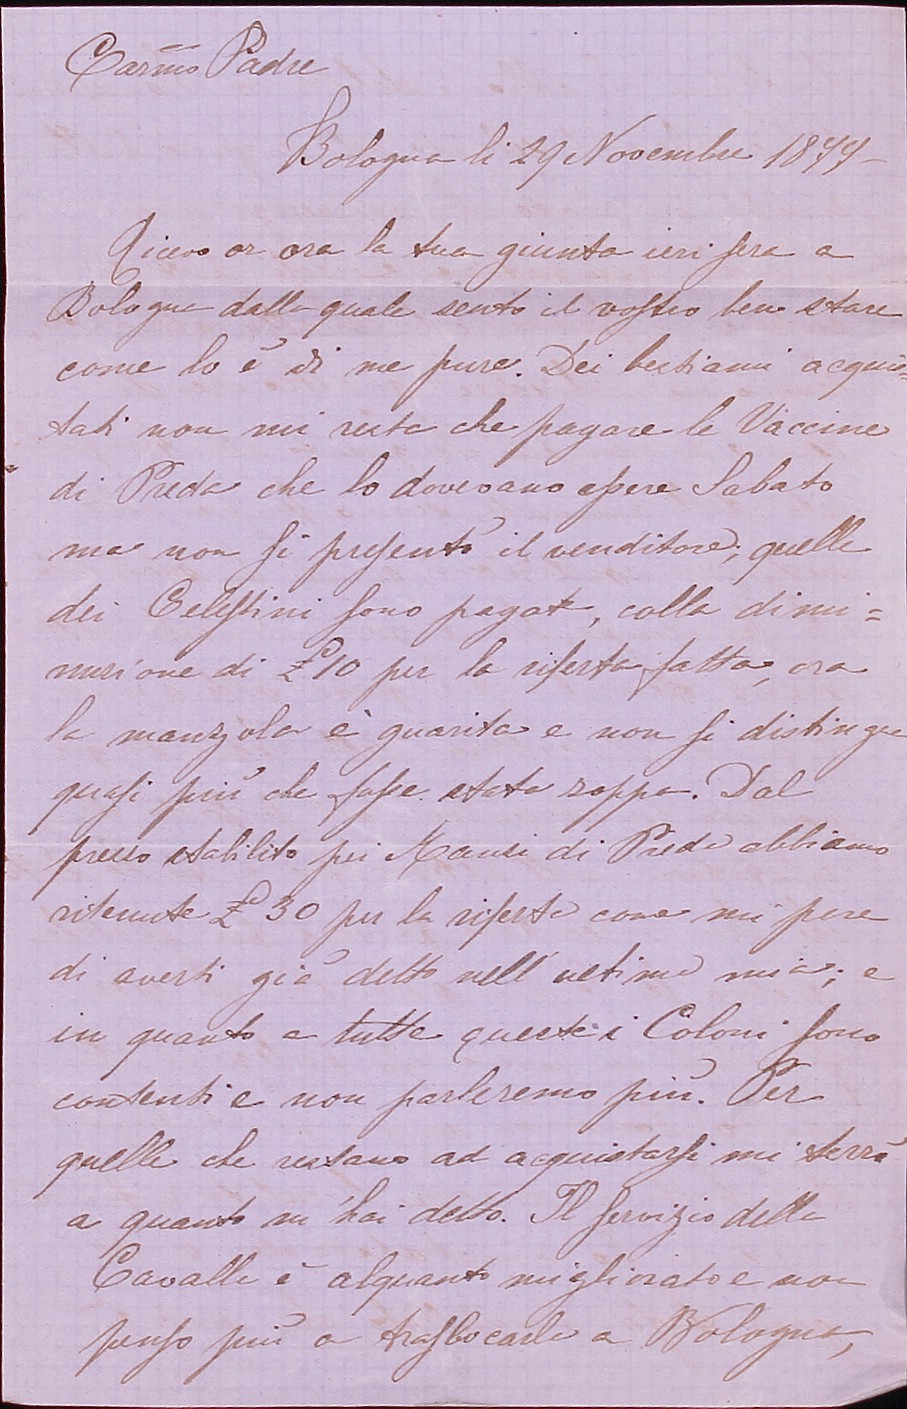 Carmo Padre
Bologna li 29 Novembre 1877
Ricevo or ora la tua giunta ieri sera a
Bologna dalla quale sento il vostro ben stare
come lo è di me pure. Dei bestiami acquis=
tati non mi resta che pagare le Vaccine
di Preda che lo dovevano essere Sabato
ma non si presentò il venditore; quelle
dei Celestini sono pagate, colla dimi=
nuzione di £ 10 per la riferta fatta, ora
la manzola è guarita e non si distingue
quasi più che fosse stata zoppa. Dal
prezzo stabilito pei Manzi di Preda abbiamo
ritenute £ 30 per la riferta come mi pare
di averti già detto nell'ultima mia; e
in quanto a tutte queste i Coloni sono
contenti e non parleremo più. Per
quelle che restano ad acquistarsi mi terrò
a quanto m'hai detto. Il servizio della
Cavalla è alquanto migliorato e non
penso più a traslocarla a Bologna,